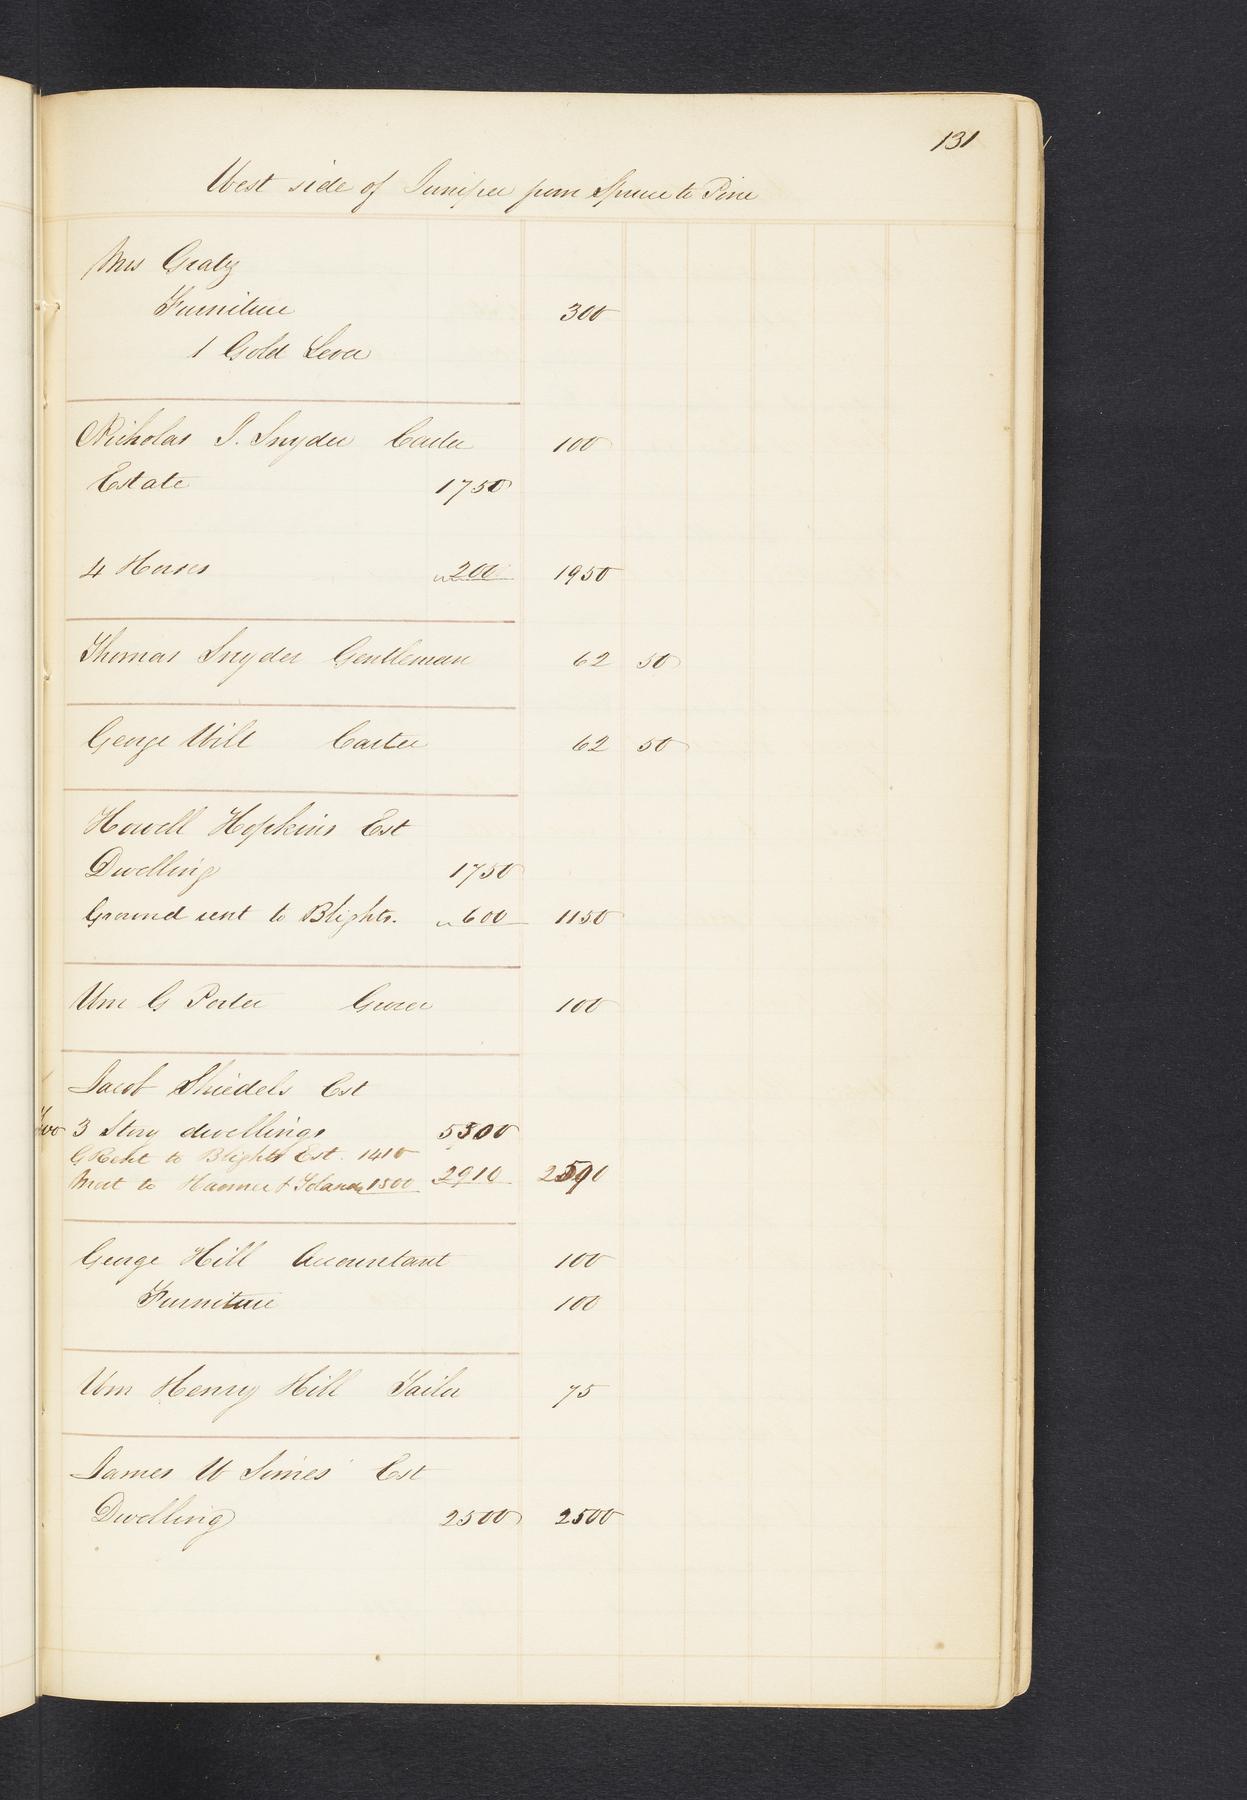 131
West side of Juniper from Spruce to Pine
Mrs Gratz
Furniture 300
1 Gold Lever
Nicholas I. Snyder Carter 100
Estate 1750
4 Horses 200 1950
Thomas Snyder Gentleman 62 50
George Will Carter 62 50
Howell Hopkins Est
Dwelling 1750
Ground rent to Blights. 600 1150
Wm G Porter Grocer 100
Jacob Shiedels Est
Two 3 Story dwellings 5500
G Rent to Blights Est. 1410
Mort to Hanmer & 1500 2910 2590
George Hill Accountant 100
Furniture 100
Wm Henry Hill Tailor 75
James W Simes Est
Dwelling 2500 2500